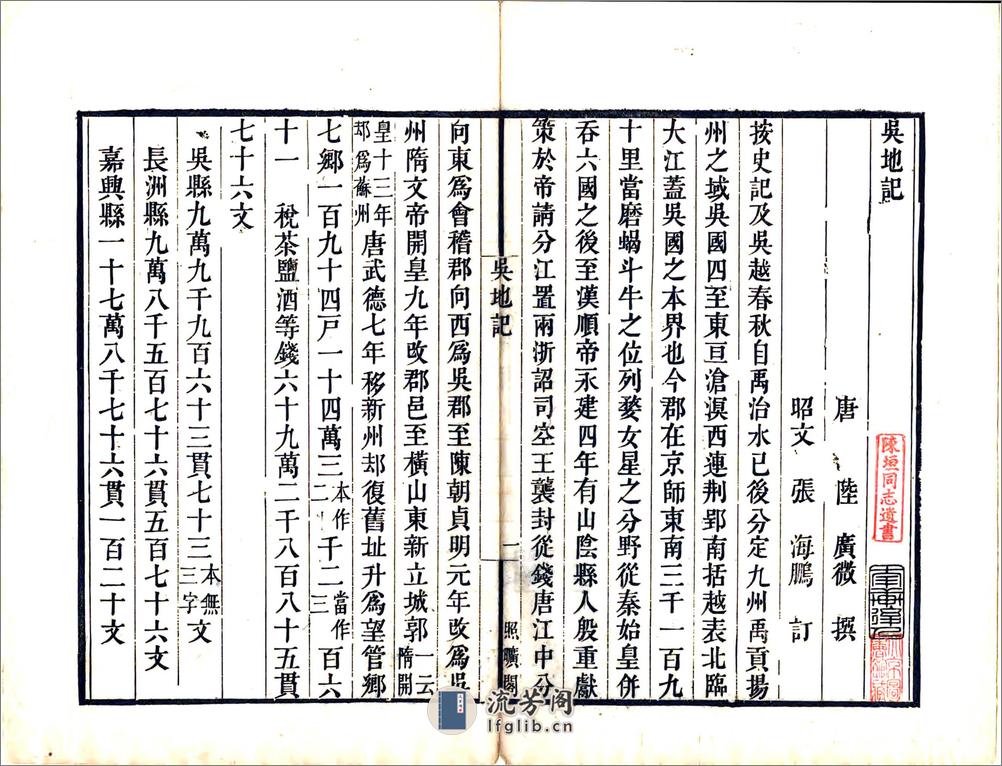 吳地記
唐 陸廣微 撰
昭文 張海鵬 訂
陳垣同志遺書
按史記及吳越春秋自禹治水已後分定九州禹貢揚
州之域吳國四至東亘滄溟西連荆郢南括越表北臨
大江蓋吳國之本界也今郡在京師東南三千一百九
十里當磨蝸斗牛之位列婺女星之分野從秦始皇併
吞六國之後至漢順帝永建四年有山陰縣人殷重獻
策於帝請分江置兩浙詔司空王襲封從錢唐江中分
吳地記 一 照曠閣
向東爲會稽郡向西爲吳郡至陳朝貞明元年改爲吳
州隋文帝開皇九年改郡邑至橫山東新立城郭一云隋開
皇十三年却爲蘇州唐武德七年移新州却復舊址升爲望管鄉
七鄉一百九十四戸一十四萬三本作二千二當作三百六
十一 稅茶鹽酒等錢六十九萬二千八百八十五貫
七十六文
吳縣九萬九千九百六十三貫七十三本無三字文
長洲縣九萬八千五百七十六貫五百七十六文
嘉興縣一十七萬八千七十六貫一百二十文
流芳阁
lfglib.cn